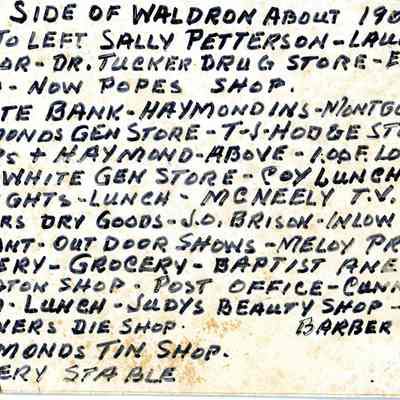 SIDE OF WALDRON ABOUT 190
TO LEFT SALLY PETTERSON - LAU
OR - DR. TUCKER DRUG STORE - E
- NOW POPES SHOP.
TE BANK - HAYMOND INS - MONTGO
MONDS GEN STORE - T-J-HODGE STO
PS + HAYMOND - ABOVE - I.O.O.F. LO
WHITE GEN STORE - COY LUNCH
GHTS - LUNCH - MCNEELY T.V.
ERS DRY GOODS - J.O. BRISON - INLOW
ANT - OUT DOOR SHOWS - MELOY PR
ERY - GROCERY - BAPTIST ANE
TON SHOP - POST OFFICE - CUNN
- LUNCH - JUDYS BEAUTY SHOP -
NERS DIE SHOP. BARBER
MONDS TIN SHOP.
ERY STABLE